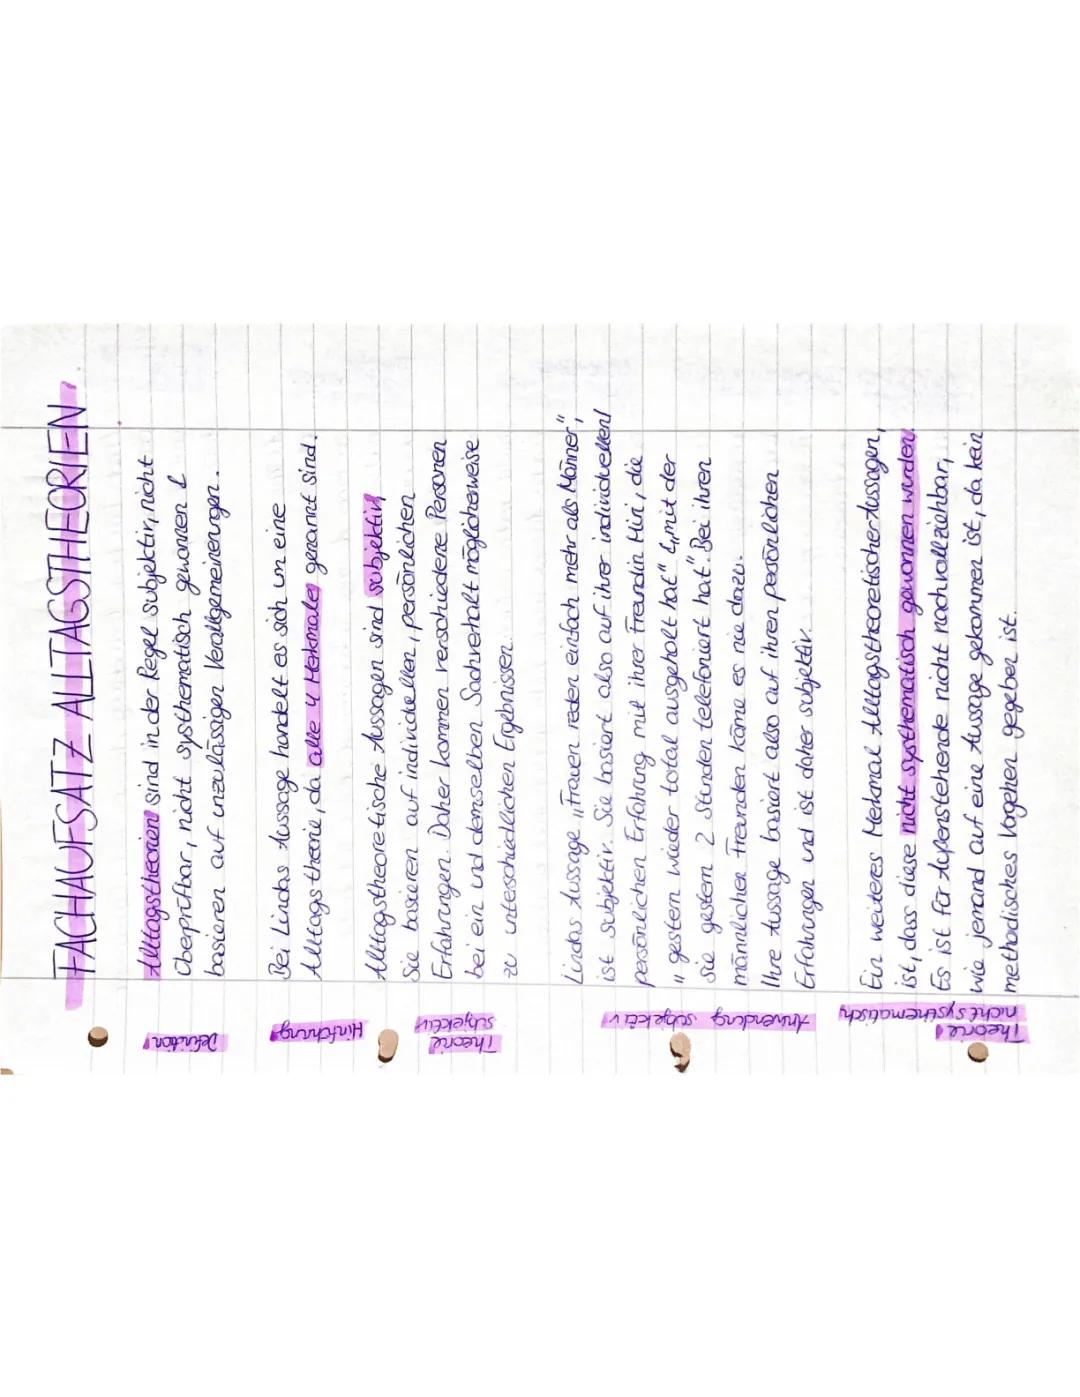 FACHAUFSATZ ALLTAGSTHEORIEN
Definition
Alltagstheorien sind in der Regel subjektiv, nicht
überprüfbar, nicht systhematisch gewonnen &
basieren auf unzulässigen Verallgemeinerungen.
Hinführung
Bei Lindas Aussage handelt es sich um eine
Alltagstheorie, da alle 4 Merkmale genannt sind.
Theorie
subjektiv
Alltagstheoretische Aussagen sind subjektiv,
Sie basieren auf individuellen, persönlichen
Erfahrungen. Daher kommen verschiedene Personen
bei ein und demselben Sachverhalt möglicherweise
zu unterschiedlichen Ergebnissen.
Anwendung subjektiv
Lindas Aussage „Frauen reden einfach mehr als Männer",
ist subjektiv. Sie basiert also auf ihrer individuellen/
persönlichen Erfahrung mit ihrer Freundin Miri, die
„gestern wieder total ausgeholt hat" & „mit der
sie gestern 2 Stunden telefoniert hat". Bei ihren
männlichen Freunden käme es nie dazu.
Ihre Aussage basiert also auf ihren persönlichen
Erfahrungen und ist daher subjektiv.
Theorie
nicht systhematisch
Ein weiteres Merkmal Alltagstheoretischer Aussagen,
ist, dass diese nicht systhematisch gewonnen wurden.
Es ist für Außenstehende nicht nachvollziehbar,
wie jemand auf eine Aussage gekommen ist, da kein
methodisches Vorgehen gegeben ist.